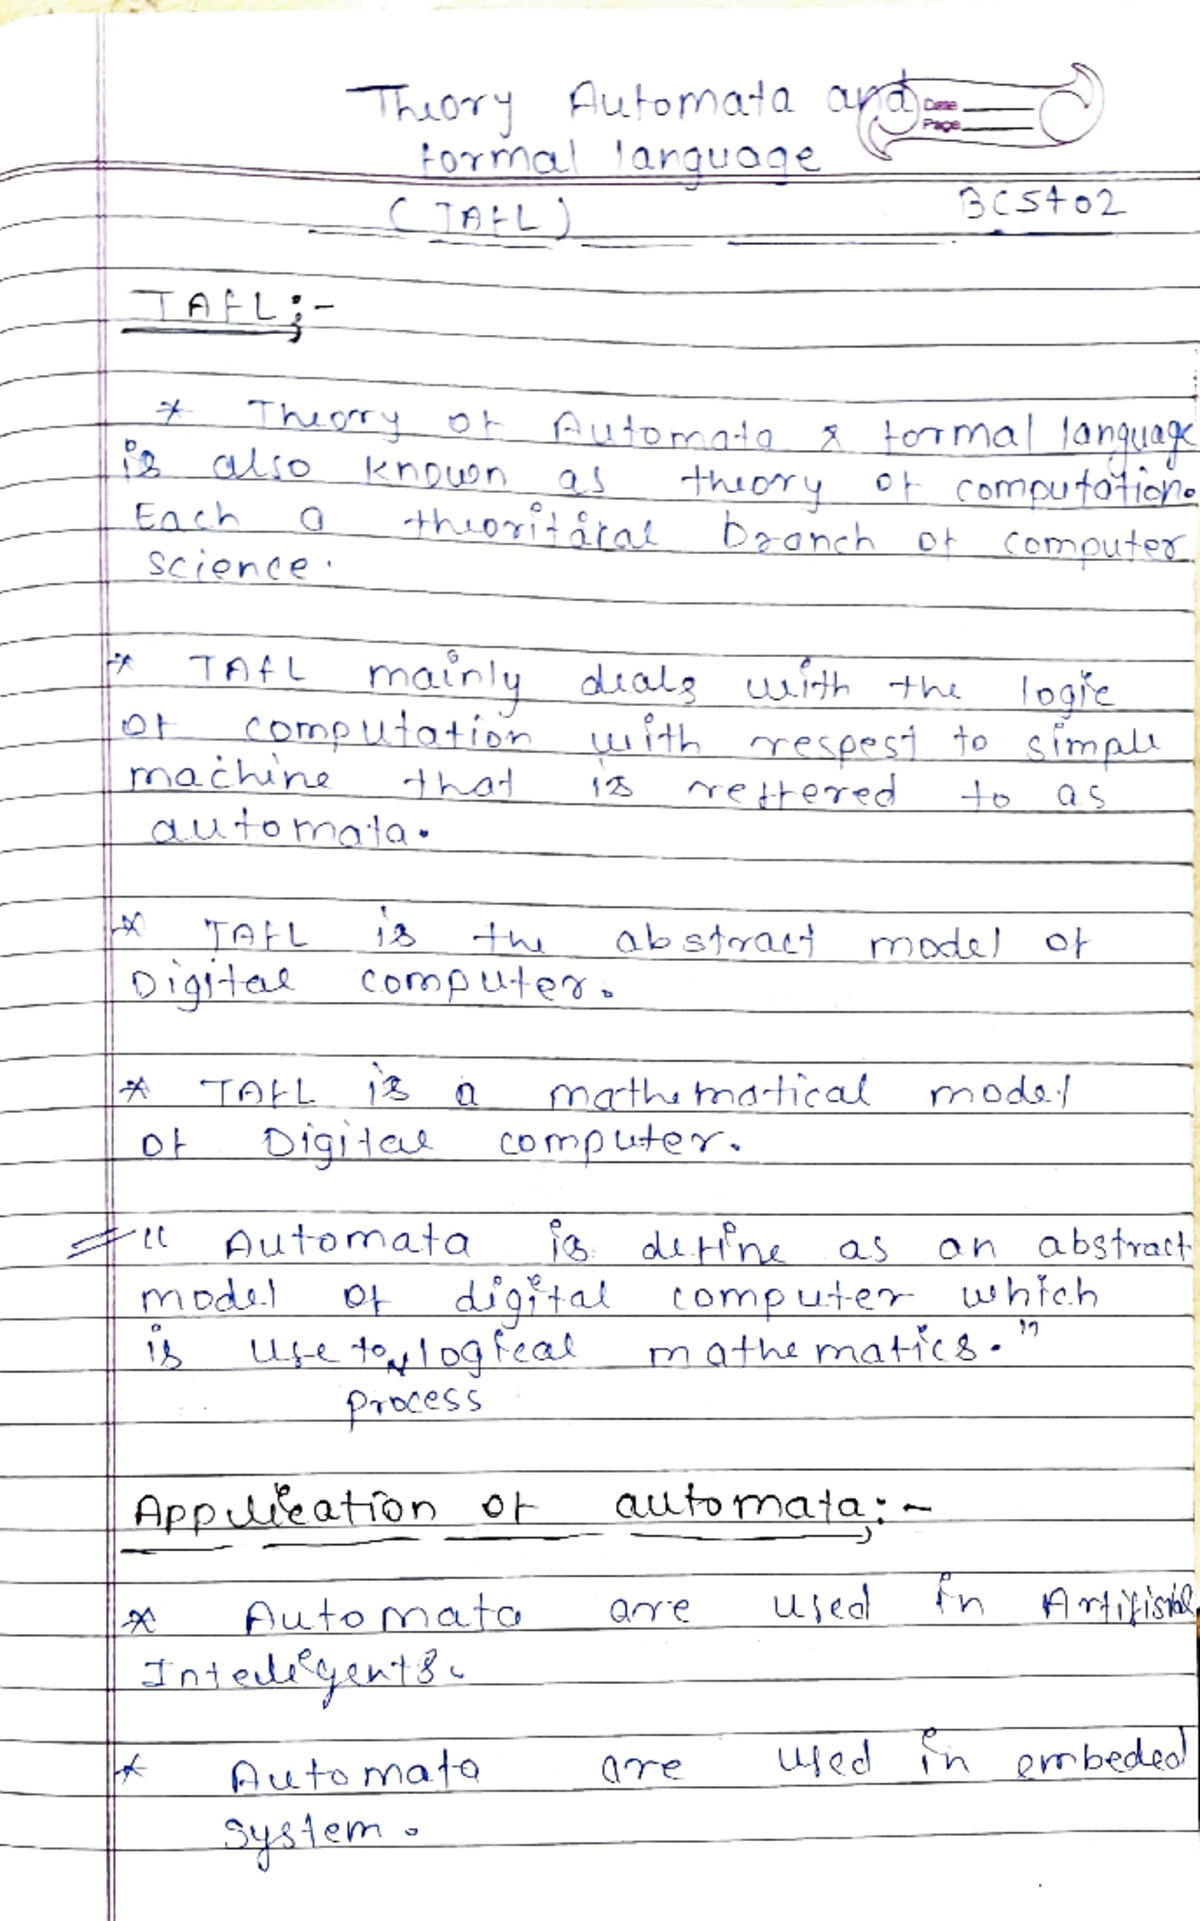 Theory Automata and
formal language
Date
Page
(TAFL) BCS402
TAFL:-
* Theory of Automata & formal language
is also known as theory of computation.
Each a theoritical branch of computer
science.
* TAFL mainly deals with the logic
of computation with respest to simple
machine that is reffered to as
automata.
* TAFL is the abstract model of
Digital computer.
* TAFL is a mathematical model
of Digital computer.
" Automata is define as an abstract
model of digital computer which
is use to logical mathematics."
process
Application of automata:-
* Automata are used in Artifisial
Intelligents.
* Automata are used in embeded
system.